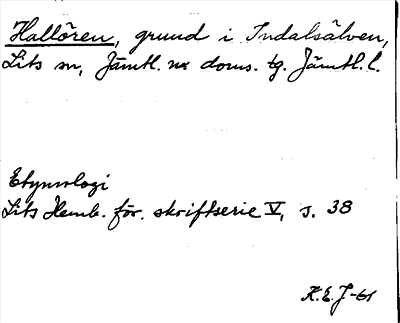 Hallören, grund i Indalsälven,
Lits sn, Jämtl. n:a doms. tg. Jämtl. l.
Etymologi
Lits Hemb. för. skriftserie V, s. 38
K.E.J-61